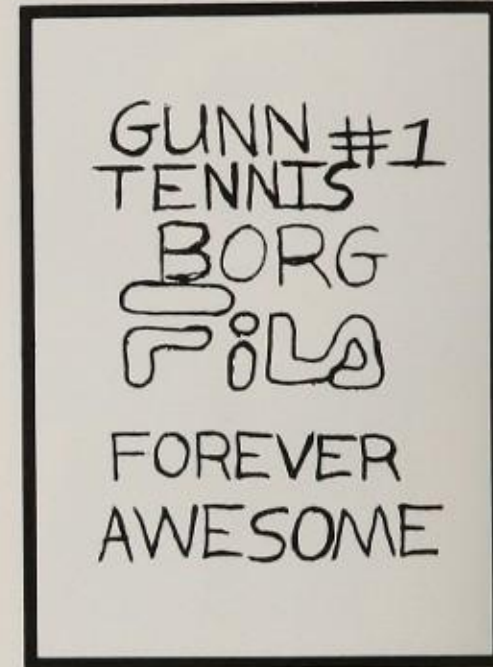 GUNN #1
TENNIS
BORG
FiLA
FOREVER
AWESOME